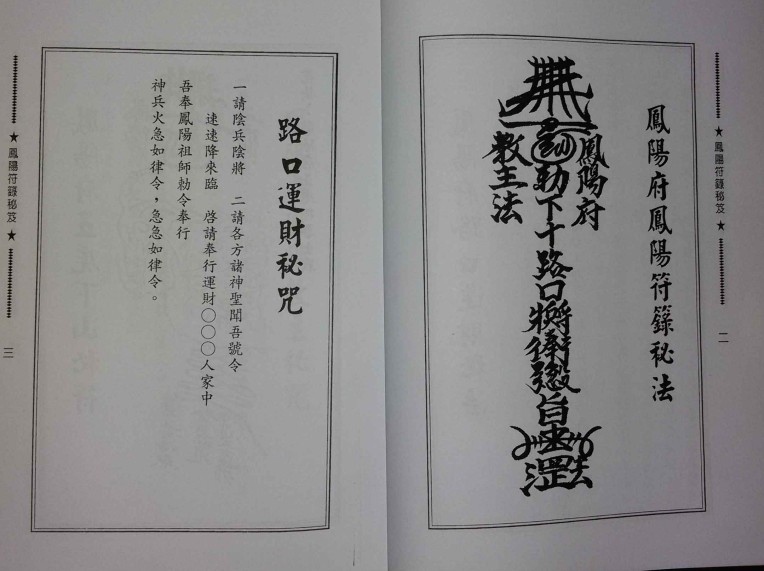 ★ 鳳陽符籙秘笈 ★
二
鳳陽府鳳陽符籙秘法
鳳陽府
勅下十路口
教主法
★ 鳳陽符籙秘笈 ★
三
路口運財秘咒
一請陰兵陰將　二請各方諸神聖聞吾號令
速速降來臨　啓請奉行運財〇〇〇人家中
吾奉鳳陽祖師勅令奉行
神兵火急如律令，急急如律令。